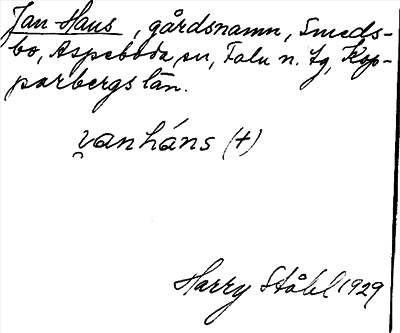 Jan-Hans, gårdsnamn, Smeds-
bo, Aspeboda sn, Falu n. tg, Kop-
parbergs län.
v̯anháns (+)
Harry Ståhl 1929